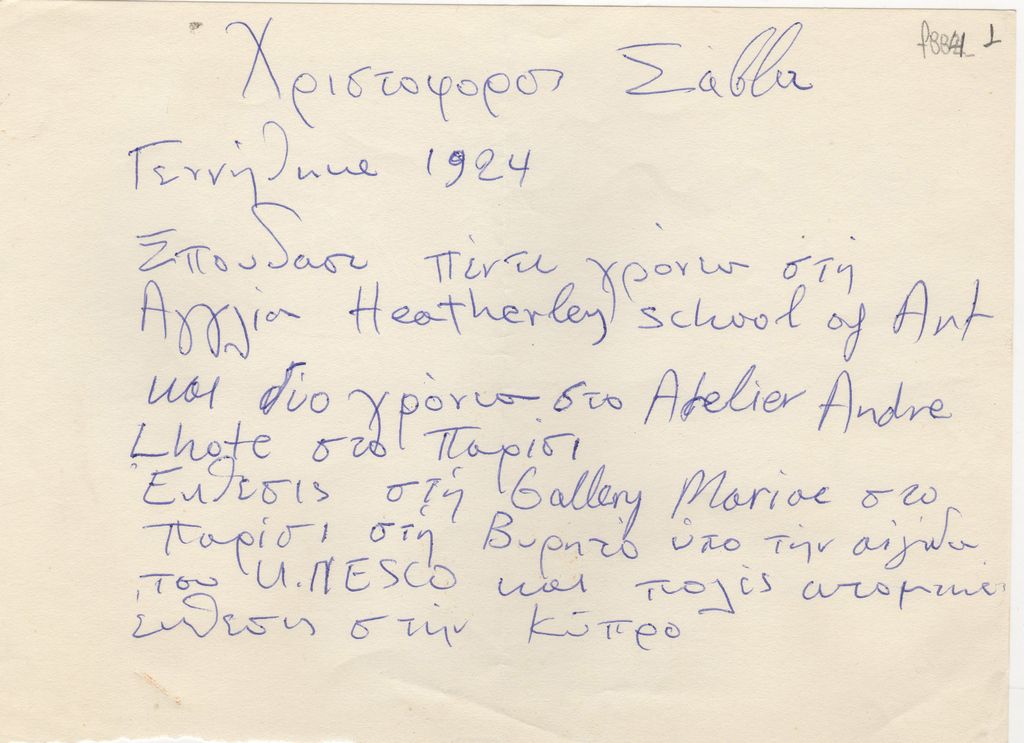 Χριστοφορος Σάββα
Γεννήθηκε 1924
Σπουδασε πέντε χρόνια στή
Αγγλία Heatherley school of Art
και δύο χρόνια στο Atelier Andre
Lhote στο Παρίσι
Εκθεσις στή Gallery Marion στο
Παρίσι στη Βυρητό ύπο την αίγιδα
του U.NESCO και πολές ατομικές
εκθεσις στήν Κύπρο